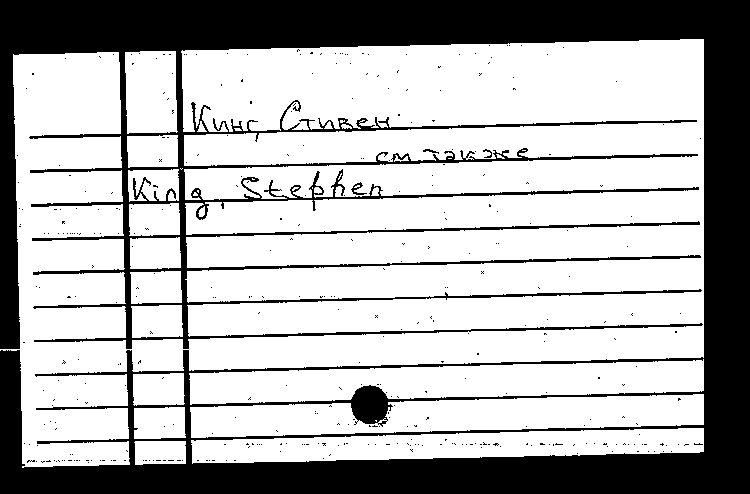 Кинг, Стивен
см. также
King, Stephen